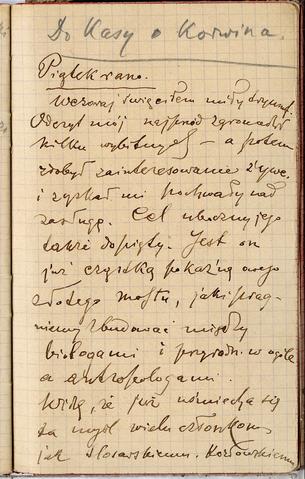 Do Kasy o Korwina.
Piątek rano.
Wczoraj święciłem mały tryumf.
Odczyt mój najprzód zgromadził
kilku wybitnych – a potem
zdobył zainteresowanie żywe
i zyskał mi pochwały nad
zasługę. Cel uboczny jego
także dopięty. Jest on
już cząstką pokaźną owego
złotego mostu, jaki prag-
niemy zbudować między
biologami i przyrodn. w ogóle
a antropologami.
Widzę, że już uśmiecha się
ta myśl wielu członkom
jak Ślósarskiemu, Kozłowskiemu